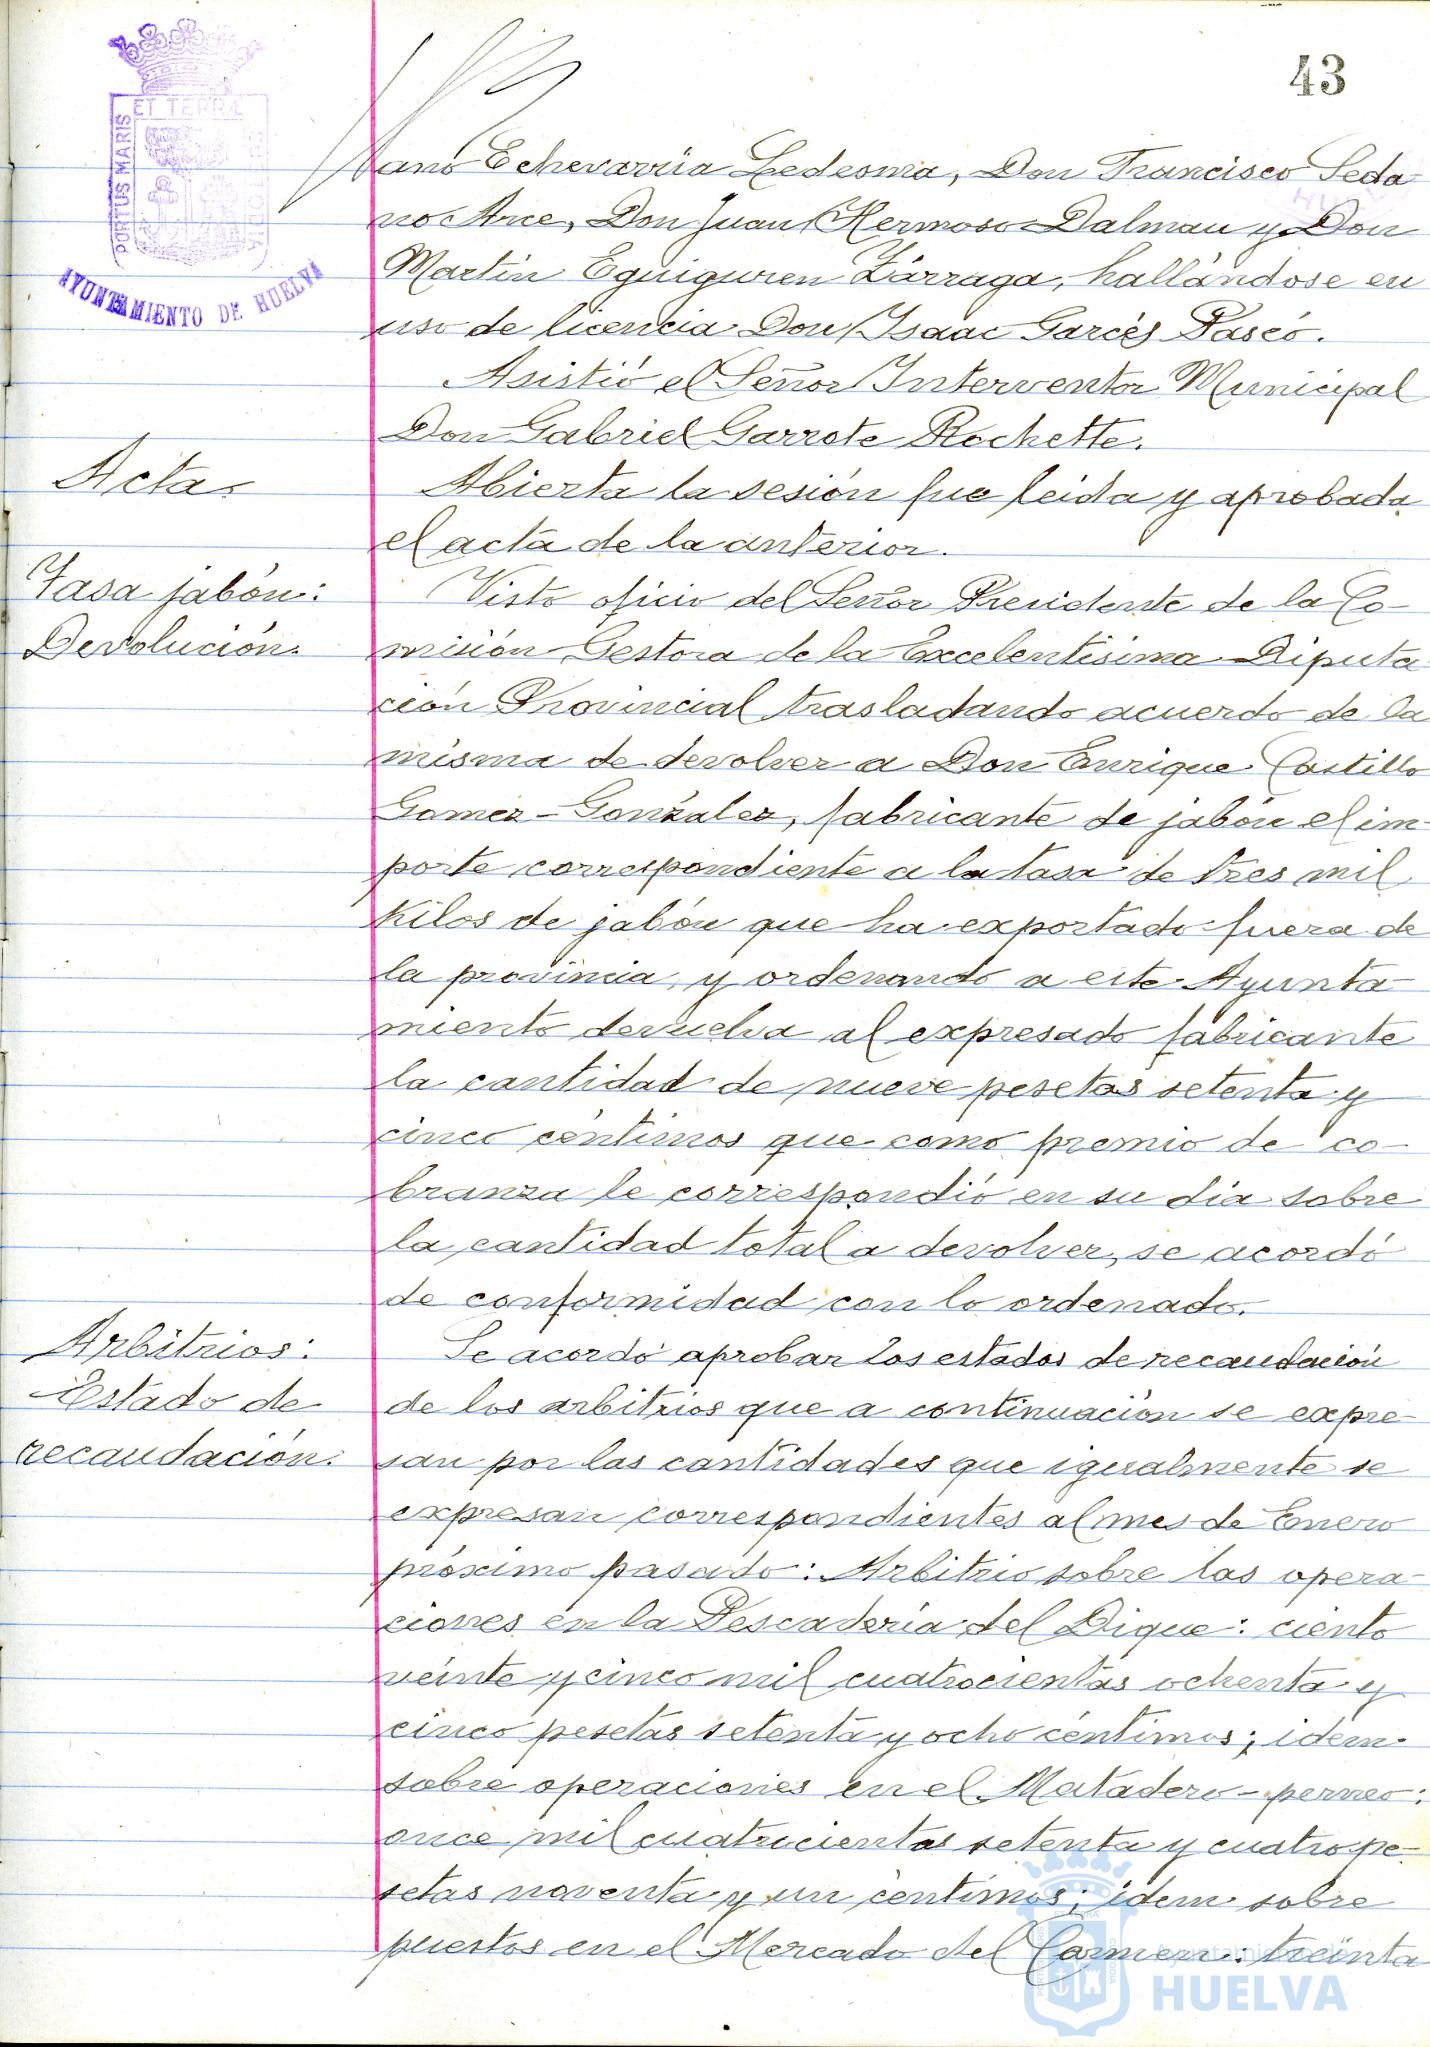 43
PORTUS MARIS ET TERRÆ CUSTODIA
AYUNTAMIENTO DE HUELVA
ano Echevarría Ledesma, Don Francisco Seda-
no Arce, Don Juan Hermoso Dalmau y Don
Martín Eguiguren Zárraga, hallándose en
uso de licencia Don Isaac Garcés Paseó.
Asistió el Señor Interventor Municipal
Don Gabriel Garrote Rochette.
Acta.
Abierta la sesión fue leida y aprobada
el acta de la anterior.
Tasa jabón:
Devolución.
Visto oficio del Señor Presidente de la Co-
misión Gestora de la Excelentísima Diputa-
ción Provincial trasladando acuerdo de la
misma de devolver a Don Enrique Castillo
Gomez-González, fabricante de jabón el im-
porte correspondiente a la tasa de tres mil
kilos de jabón que ha exportado fuera de
la provincia, y ordenando a este Ayunta-
miento devuelva al expresado fabricante
la cantidad de nueve pesetas setenta y
cinco céntimos que como premio de co-
branza le correspondió en su dia sobre
la cantidad total a devolver, se acordó
de conformidad con lo ordenado.
Arbitrios:
Estado de
recaudación.
Se acordó aprobar los estados de recaudación
de los arbitrios que a continuación se expre-
san por las cantidades que igualmente se
expresan correspondientes al mes de Enero
próximo pasado: Arbitrio sobre las opera-
ciones en la Pescadería del Dique: ciento
veinte y cinco mil cuatrocientas ochenta y
cinco pesetas setenta y ocho céntimos; idem
sobre operaciones en el Matadero-perneo:
once mil cuatrocientas setenta y cuatro pe-
setas noventa y un céntimos; idem sobre
puestos en el Mercado del Carmen: treinta
Ayuntamiento de
HUELVA